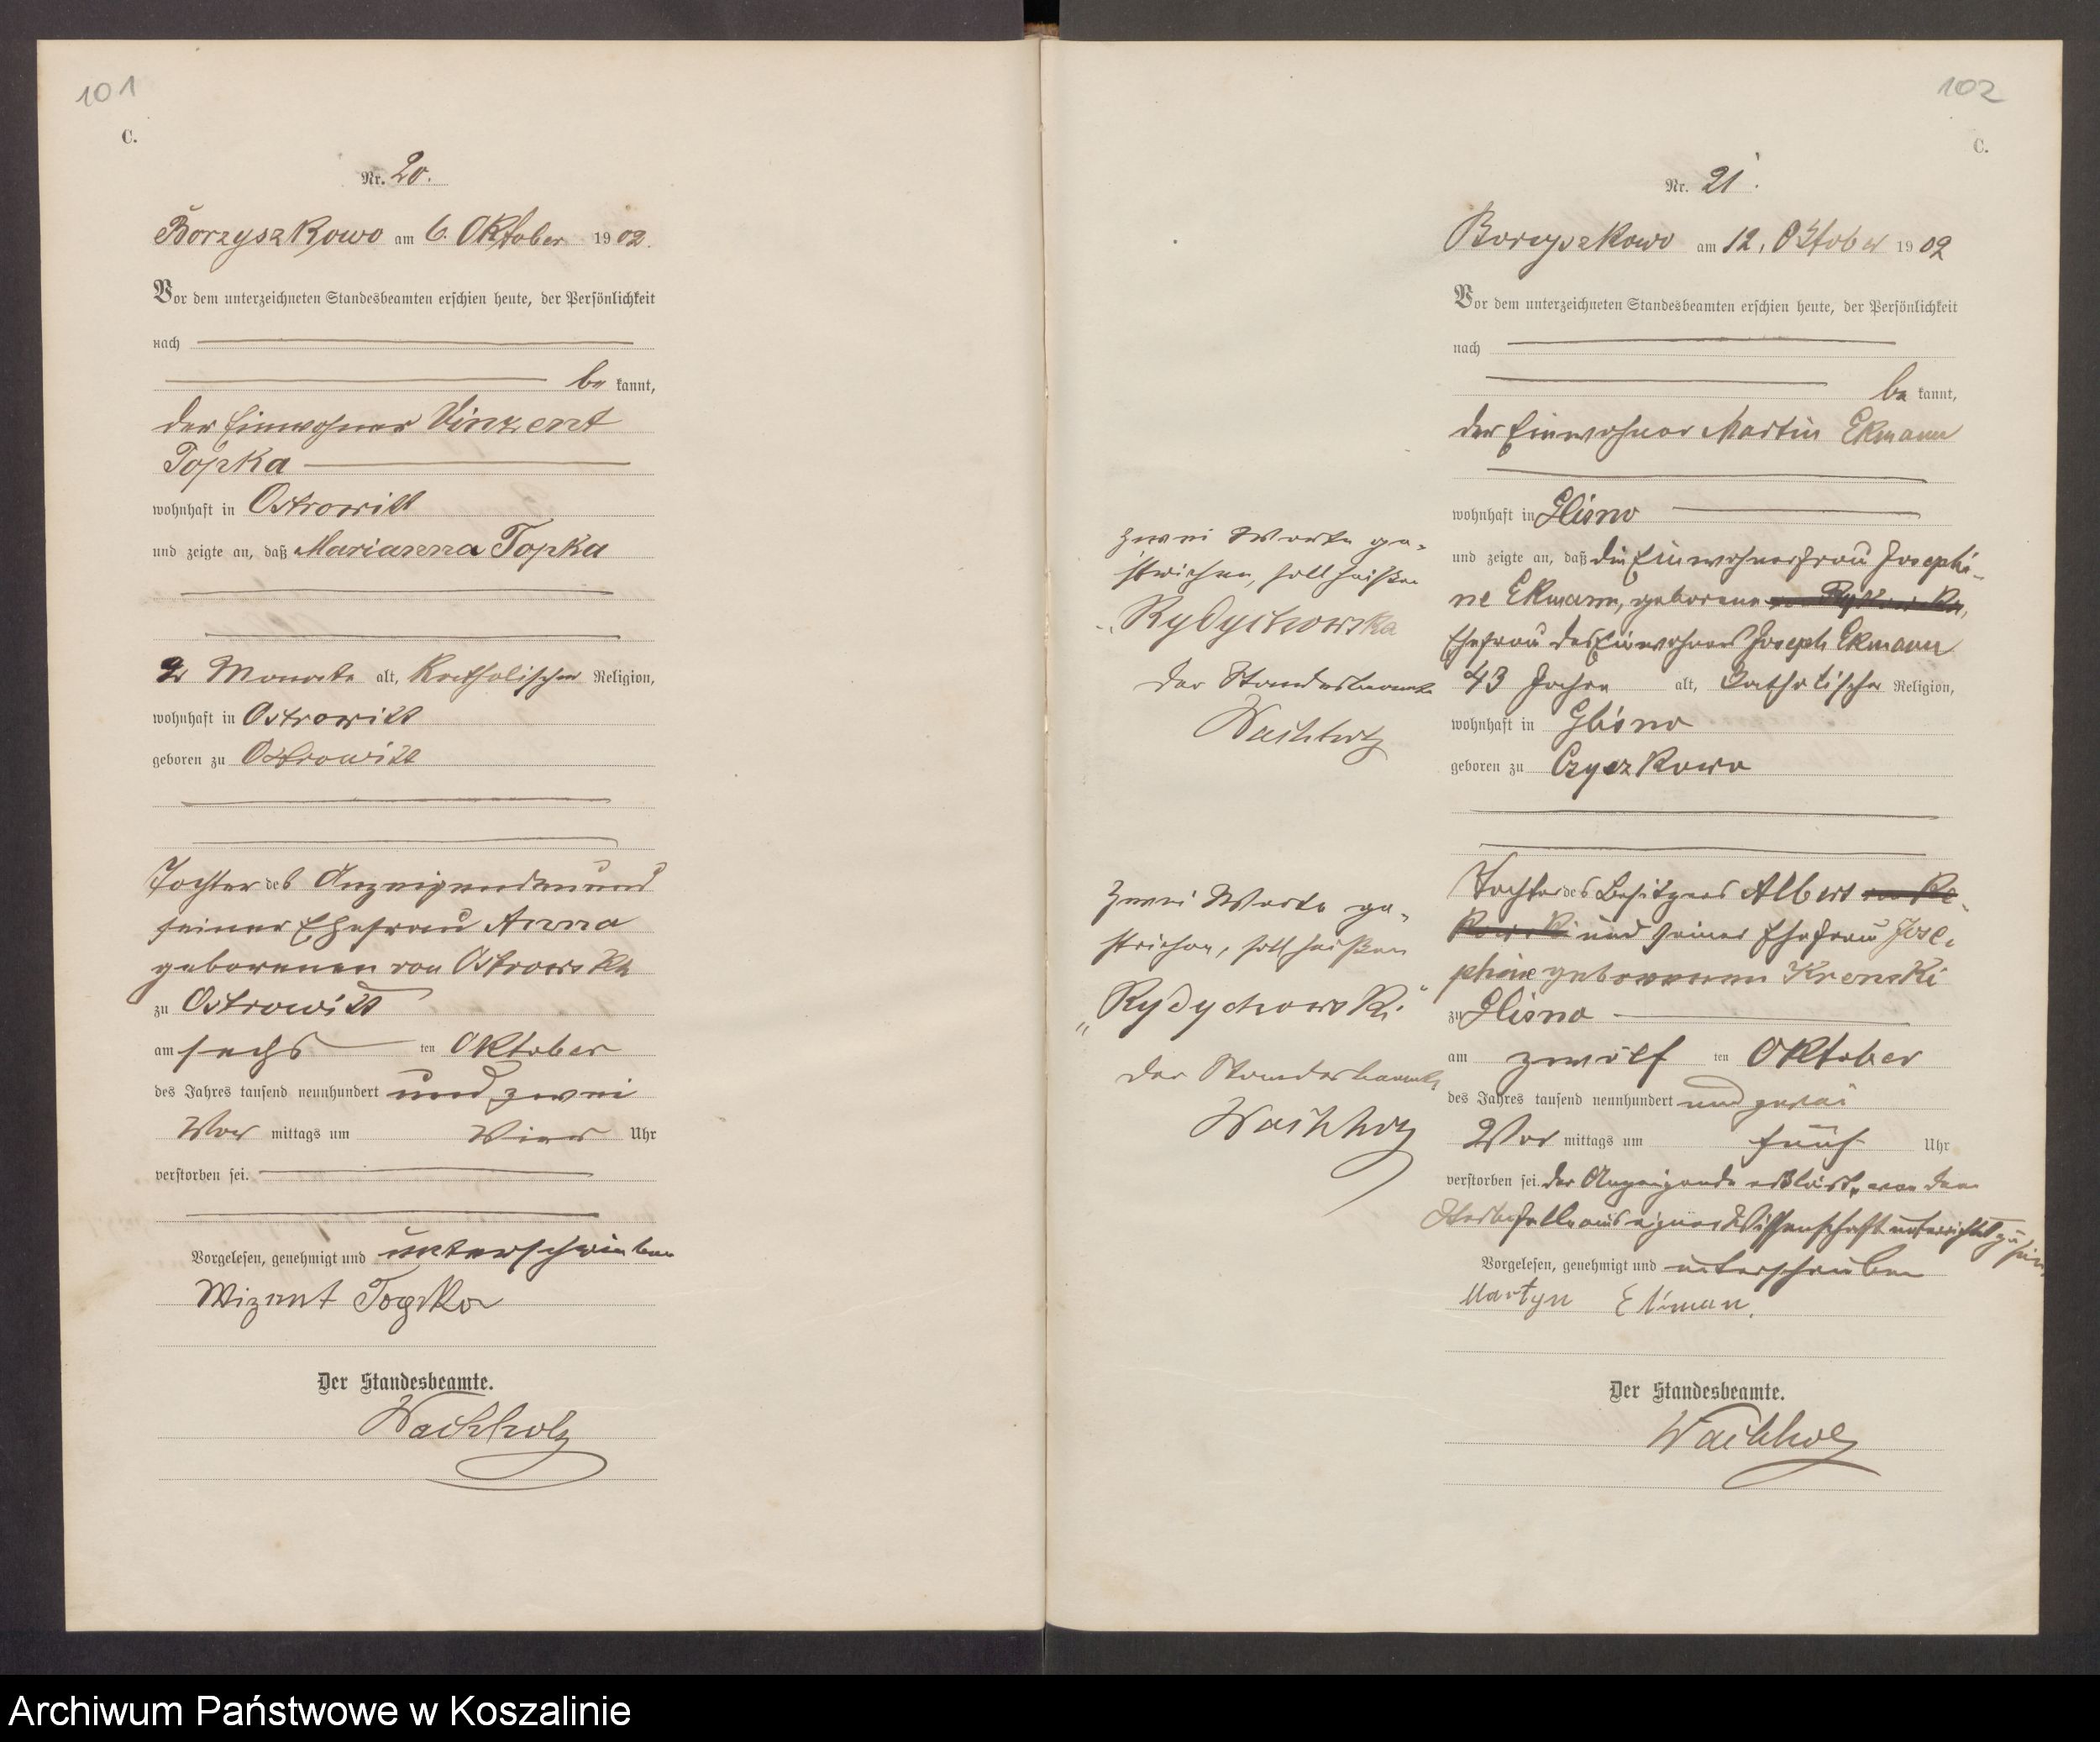 101
C.
Nr. 20.
Borzyszkowo am 6. Oktober 1902.
Vor dem unterzeichneten Standesbeamten erschien heute, der Persönlichkeit
nach
be kannt,
der Einwohner Vinzent
Topka
wohnhaft in Ostrowitt
und zeigte an, daß Marianna Topka
2 Monate alt, katholischer Religion,
wohnhaft in Ostrowitt
geboren zu Ostrowitt
Tochter des Anzeigenden und
seiner Ehefrau Anna
geborenen von Ostrowska
zu Ostrowitt
am sechs ten Oktober
des Jahres tausend neunhundert und zwei
Vor mittags um Vier Uhr
verstorben sei.
Vorgelesen, genehmigt und unterschrieben
Wizent
Der Standesbeamte.
Wachholz
102
C.
Nr. 21.
Borzyszkowo am 12. Oktober 1902
Vor dem unterzeichneten Standesbeamten erschien heute, der Persönlichkeit
nach
be kannt,
der Einwohner Martin Ekmann
wohnhaft in Glisno
und zeigte an, daß die Einwohnerfrau Josephi-
ne Ekmann, geborene
Ehefrau des Einwohners Joseph Ekmann
43 Jahre alt, katholischer Religion,
wohnhaft in Glisno
geboren zu Czyczkowo
Tochter des Besitzers Albert
und seiner Ehefrau Jose-
phine geborenen Krenski
zu Glisno
am zwölf ten Oktober
des Jahres tausend neunhundert und zwei
Vor mittags um fünf Uhr
verstorben sei. Der Anzeigende erklärt, von dem
Sterbefalle aus eigner Wissenschaft unterrichtet zu sein
Vorgelesen, genehmigt und unterschrieben
Martyn Ekman.
Der Standesbeamte.
Wachholz
Zwei Worte ge-
strichen, soll heißen
"Rydychowska
Der Standesbeamte
Wachholz
Zwei Worte ge-
strichen, soll heißen
„Rydychowski"
Der Standesbeamte
Wachholz
Archiwum Państwowe w Koszalinie